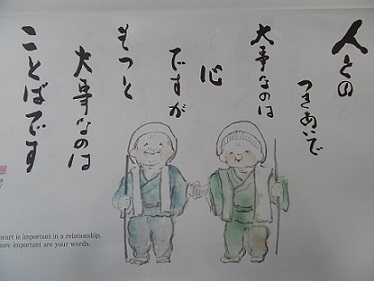 人との
つきあいで
大事なのは
心
ですが
もっと
大事なのは
ことばです
heart is important in a relationship,
more important are your words.